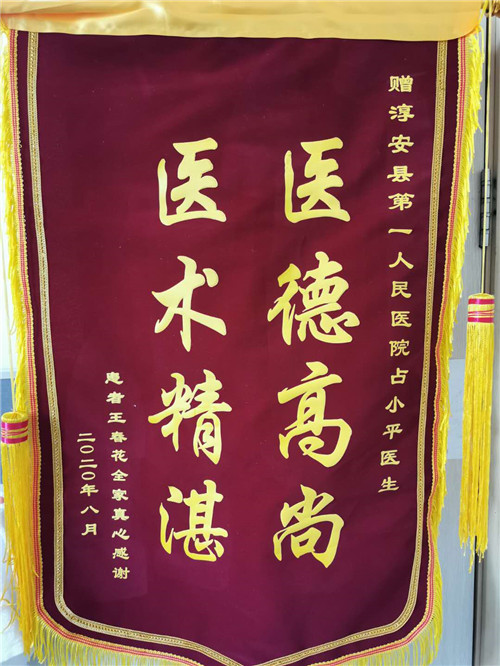 赠淳安县第一人民医院占小平医生
医德高尚
医术精湛
患者王春花全家真心感谢
二〇二〇年八月